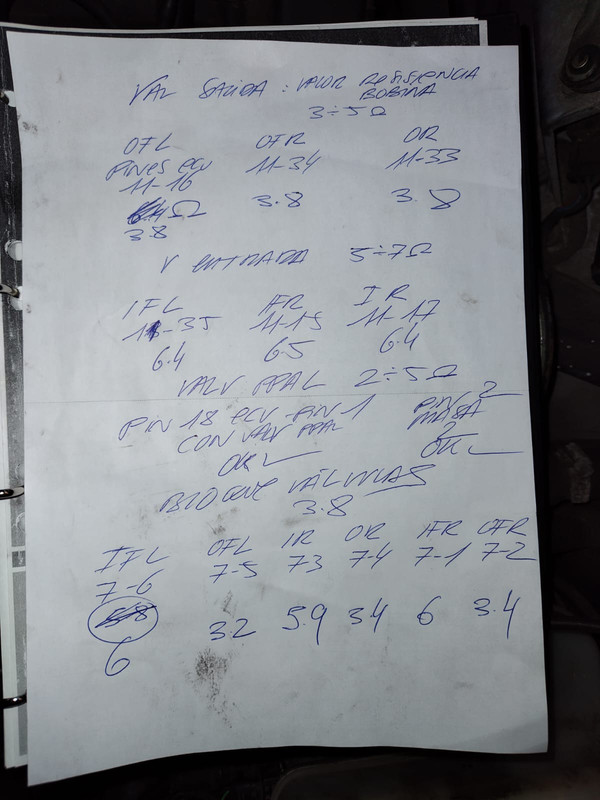 VAL SALIDA : VALOR RESISTENCIA
BOBINA
3÷5Ω
OFL OFR OR
PINES ECU 11-34 11-33
11-16
Ω 3.8 3.8
3.8
V ENTRADA 5÷7Ω
IFL IFR IR
11-35 11-15 11-17
6.4 6.5 6.4
VALV PPAL 2÷5Ω
PIN 18 ECU - PIN 1 PIN 2
CON VALV PPAL MASA
OK OK
BLOQUE VÁLVULAS
3.8
IFL OFL IR OR IFR OFR
7-6 7-5 7-3 7-4 7-1 7-2
3.2 5.9 3.4 6 3.4
6